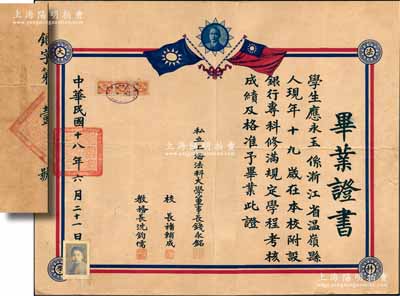 畢業證書
學生應永玉係浙江省温嶺縣
人現年十九歲在本校附設
銀行專科修滿規定學程考核
成績及格准予畢業此證
私立上海法科大學董事長錢永銘
校長褚輔成
教務長沈鈞儒
中華民國十八年六月二十一日
大
法
學
科
銀字第
號
上海陽明拍賣